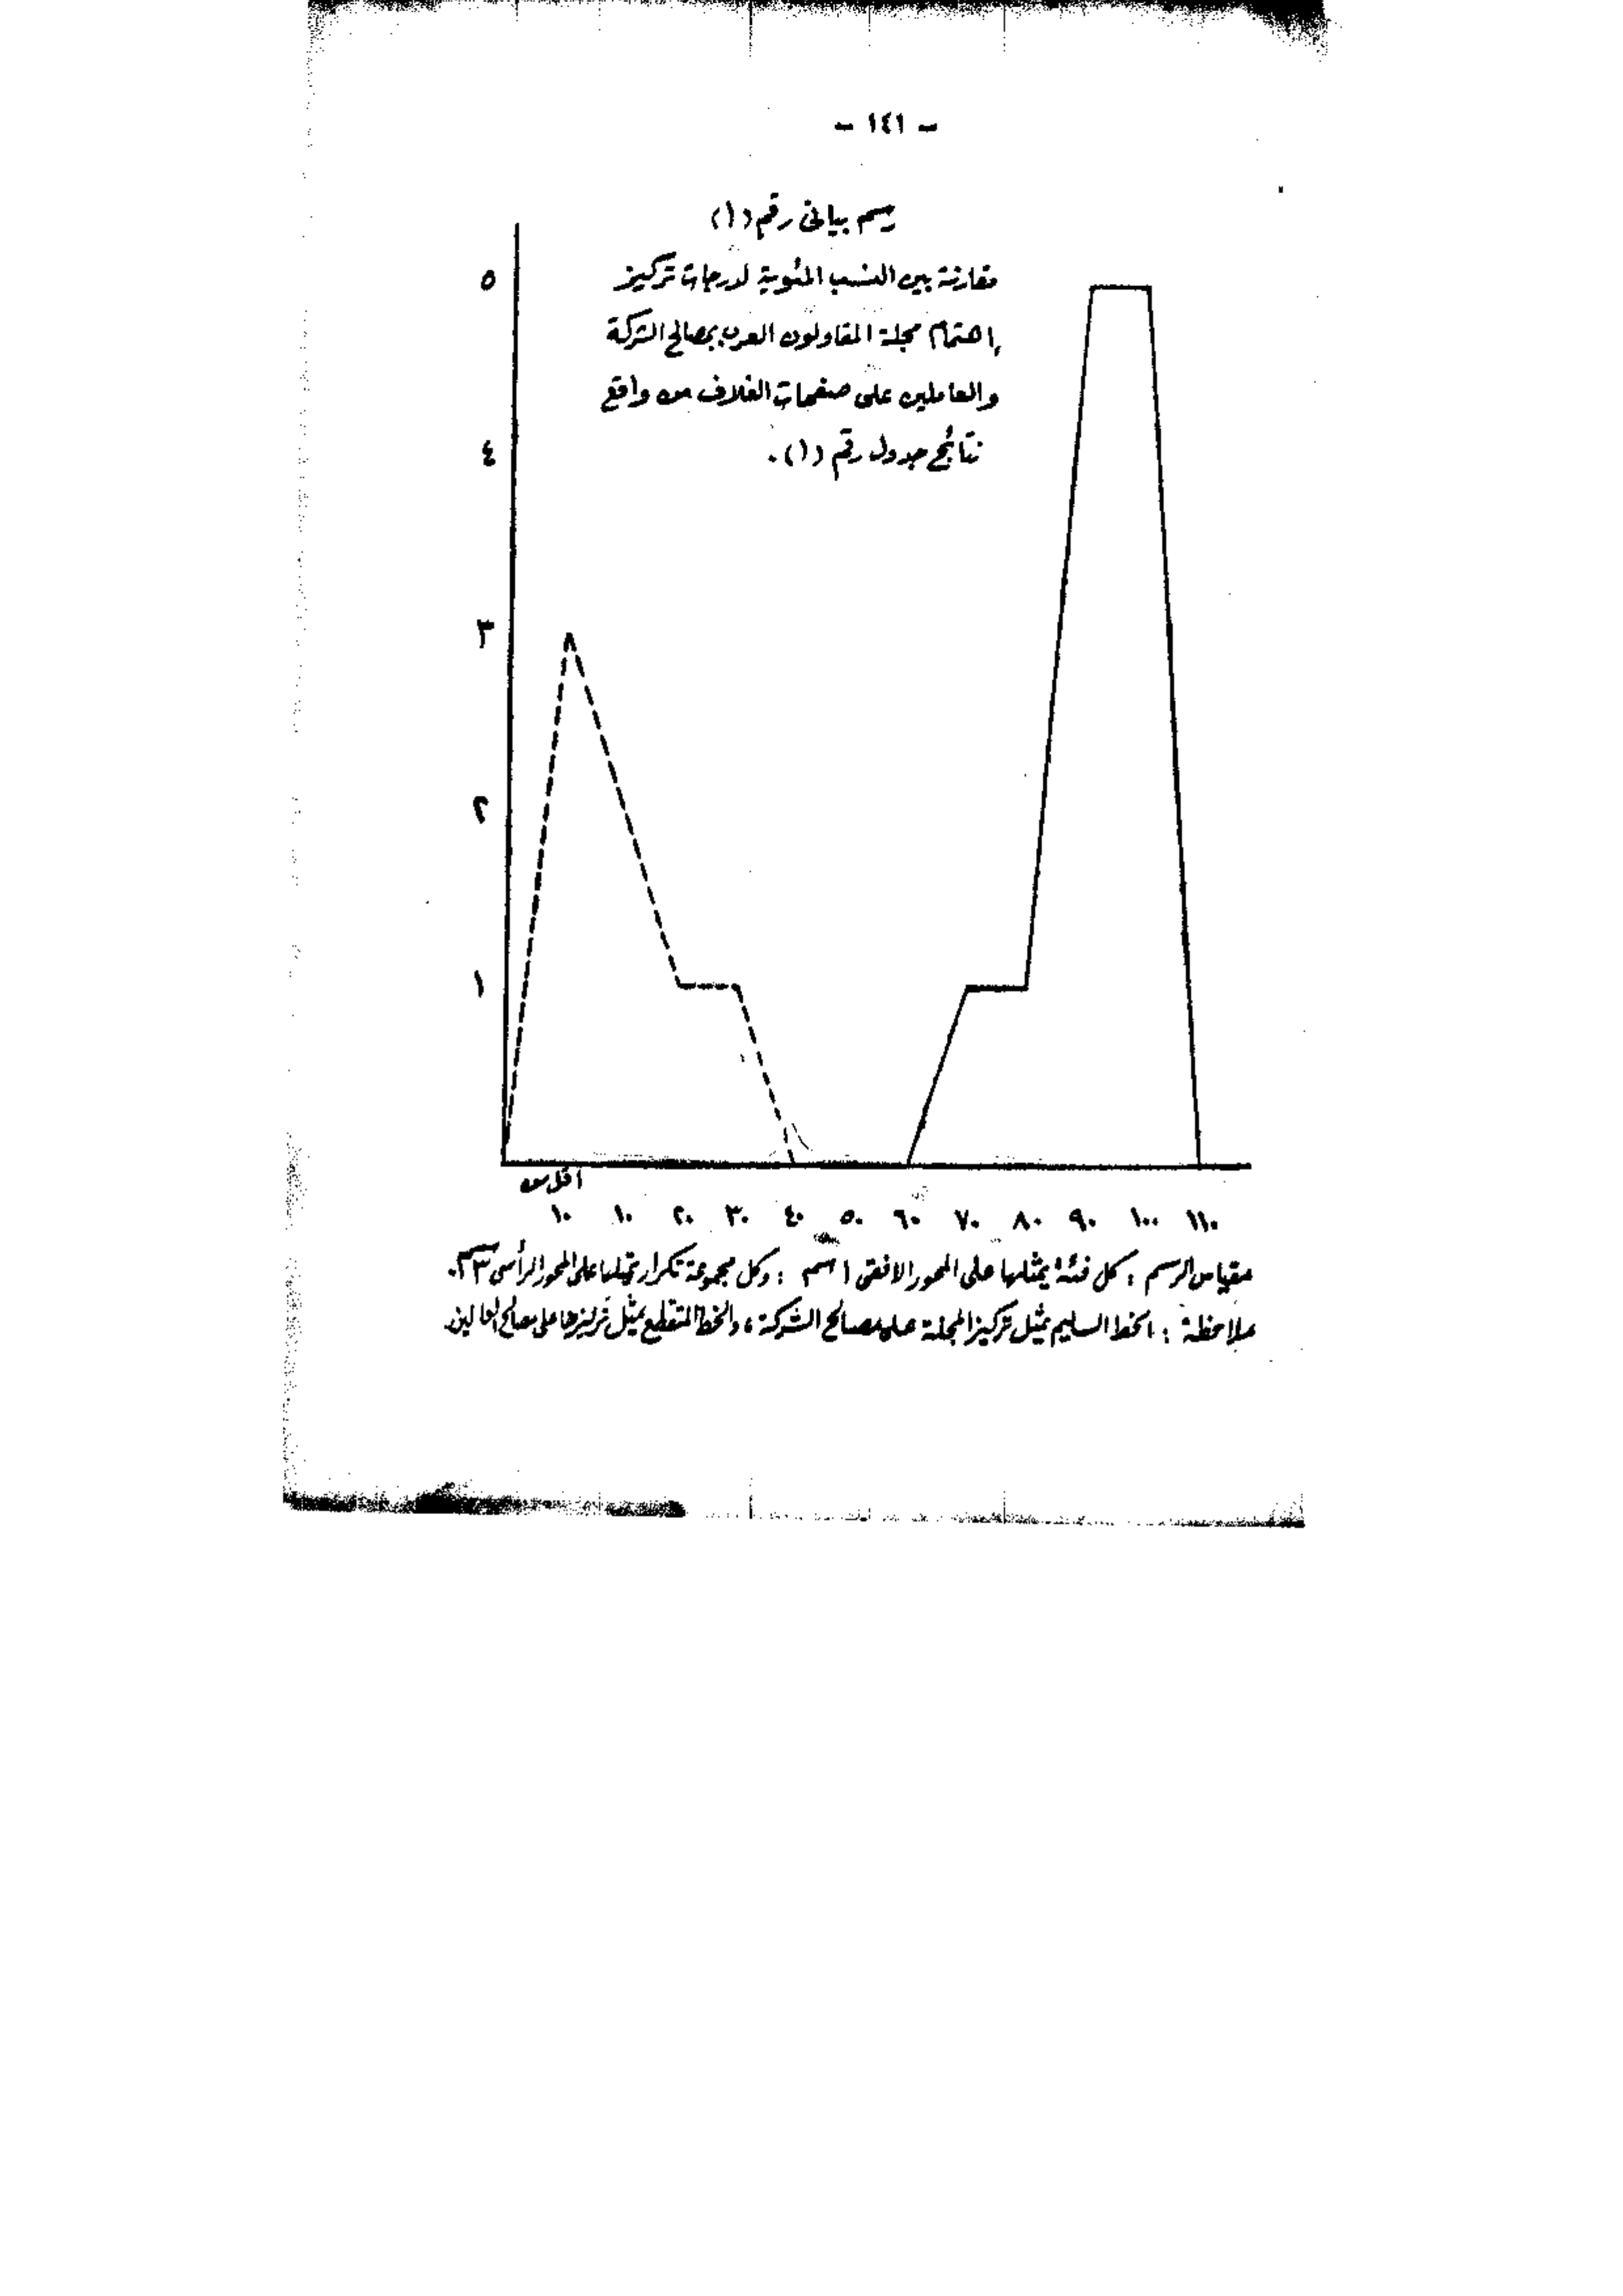 - ١٤١ -
رسم بيانى رقم (١)
مقارنة بين النسب المئوية لدرجات تركيز
إهتمام مجلة المقاولون العرب بمصالح الشركة
والعاملين على صفحات الغلاف من واقع
نتائج جدول رقم (١).
٥
٤
٣
٢
١
أقل من
١٠ ١٠ ٢٠ ٣٠ ٤٠ ٥٠ ٦٠ ٧٠ ٨٠ ٩٠ ١٠٠ ١١٠
مقياس الرسم : كل فئة يمثلها على المحور الافقى ١ سم : وكل مجموعة تكرار تمثلها على المحور الرأسى ٣ سم.
ملاحظة : الخط السليم يمثل تركيز المجلة على مصالح الشركة ، والخط المتقطع يمثل تركيزها على مصالح العاملين.